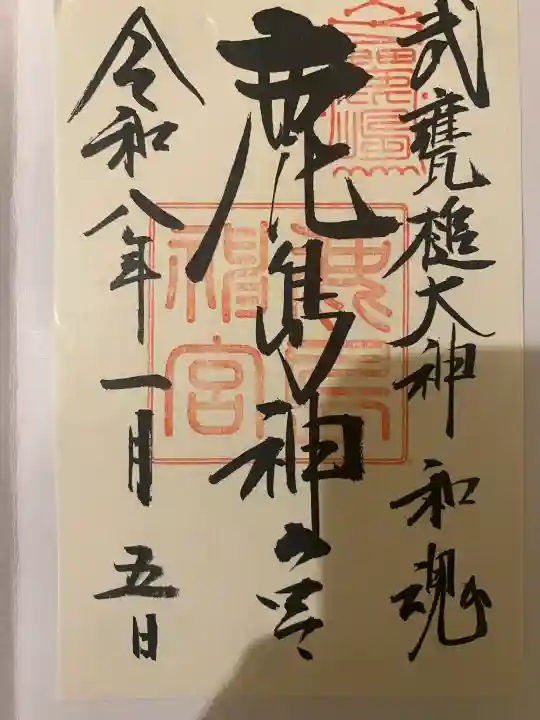 武甕槌大神 和魂
鹿島神宮
令和八年一月五日
鹿島
神宮